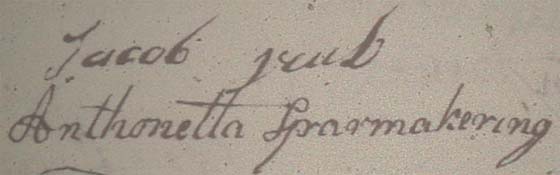 Jacob
Anthonetta Sparmakering